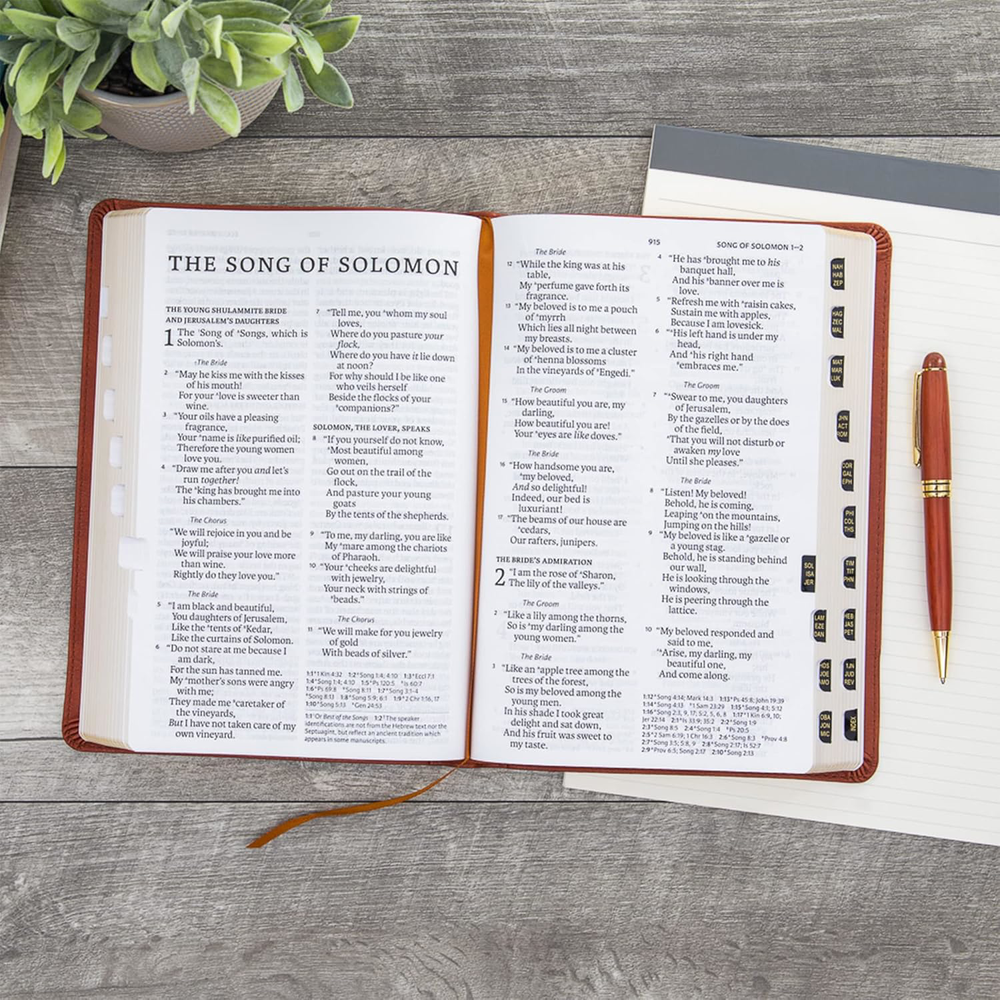 THE SONG OF SOLOMON
THE YOUNG SHULAMMITE BRIDE
AND JERUSALEM'S DAUGHTERS
1 The Song of Songs, which is
Solomon's.
The Bride
2 "May he kiss me with the kisses
of his mouth!
For your love is sweeter than
wine.
3 "Your oils have a pleasing
fragrance,
Your name is like purified oil;
Therefore the young women
love you.
4 "Draw me after you and let's
run together!
The king has brought me into
his chambers."
The Chorus
"We will rejoice in you and be
joyful;
We will praise your love more
than wine.
Rightly do they love you."
The Bride
5 "I am black and beautiful,
You daughters of Jerusalem,
Like the tents of Kedar,
Like the curtains of Solomon.
6 "Do not stare at me because I
am dark,
For the sun has tanned me.
My mother's sons were angry
with me;
They made me caretaker of
the vineyards,
But I have not taken care of my
own vineyard.
7 "Tell me, you whom my soul
loves,
Where do you pasture your
flock,
Where do you have it lie down
at noon?
For why should I be like one
who veils herself
Beside the flocks of your
companions?"
SOLOMON, THE LOVER, SPEAKS
8 "If you yourself do not know,
Most beautiful among
women,
Go out on the trail of the
flock,
And pasture your young
goats
By the tents of the shepherds.
9 "To me, my darling, you are like
My mare among the chariots
of Pharaoh.
10 "Your cheeks are delightful
with jewelry,
Your neck with strings of
beads."
The Chorus
11 "We will make for you jewelry
of gold
With beads of silver."
1:1 Or Best of the Songs 1:2 The speaker
identifications are not from the Hebrew text nor the
Septuagint, but reflect an ancient tradition which
appears in some manuscripts.
915
SONG OF SOLOMON 1—2
The Bride
12 "While the king was at his
table,
My perfume gave forth its
fragrance.
13 "My beloved is to me a pouch
of myrrh
Which lies all night between
my breasts.
14 "My beloved is to me a cluster
of henna blossoms
In the vineyards of Engedi."
The Groom
15 "How beautiful you are, my
darling,
How beautiful you are!
Your eyes are like doves."
The Bride
16 "How handsome you are,
my beloved,
And so delightful!
Indeed, our bed is
luxuriant!
17 "The beams of our house are
cedars,
Our rafters, junipers.
THE BRIDE'S ADMIRATION
2 "I am the rose of Sharon,
The lily of the valleys."
The Groom
2 "Like a lily among the thorns,
So is my darling among the
young women."
The Bride
3 "Like an apple tree among the
trees of the forest,
So is my beloved among the
young men.
In his shade I took great
delight and sat down,
And his fruit was sweet to
my taste.
4 "He has brought me to his
banquet hall,
And his banner over me is
love.
5 "Refresh me with raisin cakes,
Sustain me with apples,
Because I am lovesick.
6 "His left hand is under my
head,
And his right hand
embraces me."
The Groom
7 "Swear to me, you daughters
of Jerusalem,
By the gazelles or by the does
of the field,
That you will not disturb or
awaken my love
Until she pleases."
The Bride
8 "Listen! My beloved!
Behold, he is coming,
Leaping on the mountains,
Jumping on the hills!
9 "My beloved is like a gazelle or
a young stag.
Behold, he is standing behind
our wall,
He is looking through the
windows,
He is peering through the
lattice.
10 "My beloved responded and
said to me,
'Arise, my darling, my
beautiful one,
And come along.
NAH
HAB
ZEP
HAG
ZEC
MAL
MAT
MAR
LUK
JHN
ACT
ROM
COR
GAL
EPH
PHI
COL
THS
SOL
ISA
JER
TIM
TIT
PHN
LAM
EZE
DAN
HEB
JAS
PET
HOS
JOE
AMO
1JN
JUD
REV
OBA
JON
MIC
INDEX